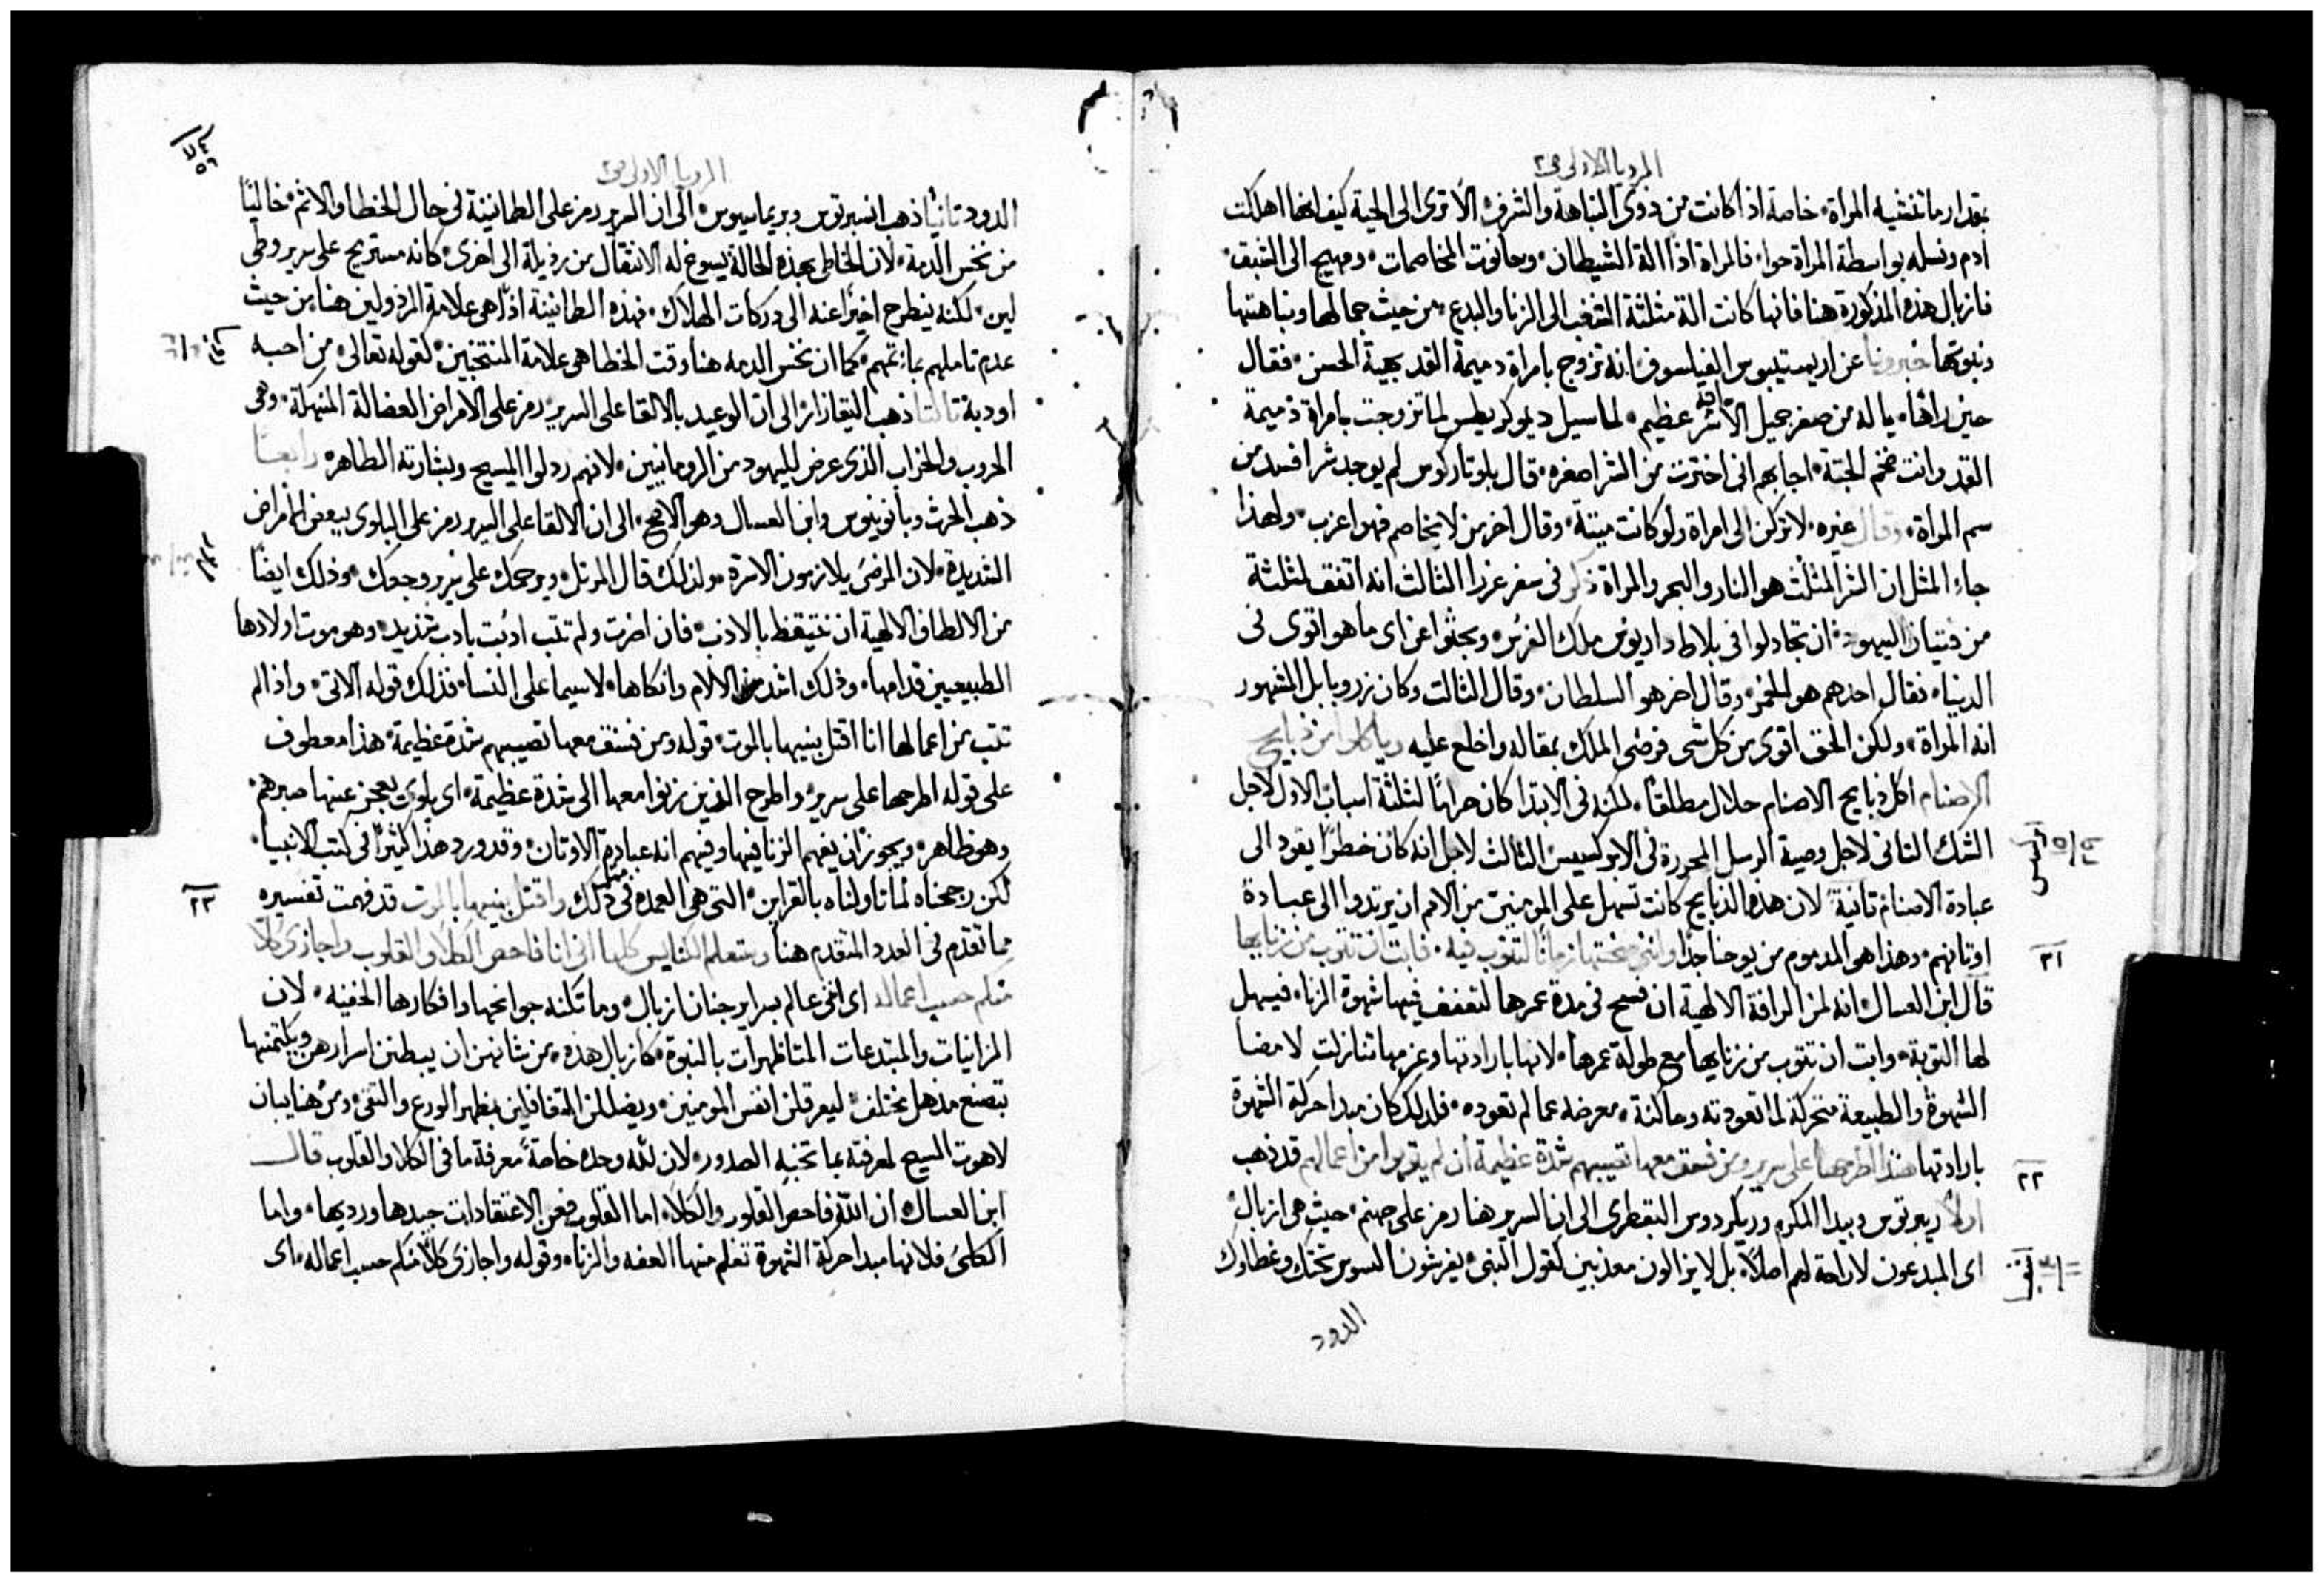 الرويا الاولى ص٢
بمقدار ما تنتشيه المراة، خاصة اذا كانت من ذوى النباهة والشرف، الا ترى الى الحية كيف انها اهلكت
ادم ونسله بواسطة المراة حوا، فالمراة اذًا الة الشيطان، وحانوت المخاصمات، ومهيج الى الشبق،
فازبال هذه المذكورة هنا فانها كانت الة مثلثة الشغب الى الزنا والبدع، من حيث جمالها ونباهتها
ونبوتها خبرونا عن اريستيبوس الفيلسوف انه تزوج بامراة دميمة القد بهية الحسن، فقال
حين رائها، يا له من صغر جميل الا انه شر عظيم، لما سيل ديموكريطس لما تزوجت بامراة ذميمة
القد وانت ضخم الجثة، اجابهم انى اخترت من الشر اصغره، قال بلوتاركوس لم يوجد شرا فسد من
سم المراة، وقال غيره، لا تركن الى امراة ولو كانت ميتة، وقال اخر من لا يخاصم فهو اعزب، ولهذا
جاء المثل ان الشر المثلث هو النار والبحر والمراة ذكر فى سفر عزرا الثالث انه اتفق لثلثة
من فتيان اليهود، ان تجادلوا فى بلاط داريوس ملك الفرس، وبحثوا عن اى ما هو اقوى فى
الدنيا، فقال احدهم هو الخمر، وقال اخر هو السلطان، وقال الثالث وكان زروبابل المشهور
انه المراة، ولكن الحق اقوى من كل شى فرضى الملك بمقاله واخلع عليه وياكلوا من ذبايح
الاصنام اكل ذبايح الاصنام حلال مطلقًا، لكنه فى الابتدا كان حرامًا لثلثة اسباب، الاول لاجل
الشك الثانى لاجل وصية الرسل المحررة فى الابركسيس، الثالث لاجل انه كان خطرًا يقود الى
عبادة الاصنام ثانيةً، لان هذه الذبايح كانت تسهل على المومنين من الامم ان يرتدوا الى عبادة
اوثانهم، وهذا هو المدموم من يوحنا جدًا وانى منحتها زمانًا لتتوب فيه، فابت ان تتوب من زنايها
قال ابن العسال انه لمن الرافة الالهية ان فسح فى مدة عمرها لتضعف فيها شهوة الزنا، فيسهل
لها التوبة، وابت ان تتوب من زنايها مع طولة عمرها، لانها بارادتها وعزمها تنازلت لامضا
الشهوة والطبيعة متحركة لما تعودته وساكنة، معرضه عما لم تعوده، فلذلك كان مبدا حركة الشهوة
بارادتها هنذا اطرحها على سرير ومن فسق معها تصيبهم شدة عظيمة ان لم يتوبوا من اعمالهم قد ذهب
اولًا ريبرتوس وبيدا المكرم وريكردوس البقطرى الى ان السرير هنا رمز على جهنم، حيث هى ازبال
اى المبدعون لا راحة لهم اصلًا، بل لا يزالون معذبين كقول النبى، يفرشون السوس تحتك وغطاوك
الدود
٢١
٢٢
الرويا الاولى ص٢
الدود ثانيًا ذهب انسبرتوس وبريماسيوس، الى ان السرير رمز على الطمانينة فى حال الخطا والاثم، خاليًا
من نخس الذمة، لان الخاطى بهذه الحالة يسوغ له الانتقال من رذيلة الى اخرى، كانه مستريح على سرير وطى
لين، لكنه ينطرح اخيرًا عنه الى دركات الهلاك، فهذه الطمانينة اذًا هى علامة المرذولين هنا من حيث
عدم تاملهم بماثمهم، كما ان نخس الدمه هنا وقت الخطا هو علامة المنتخبين، كقوله تعالى، من احبه
اودبه ثالثًا ذهب التيغازار، الى ان الوعيد بالالقا على السرير، رمز على الامراض العضالة المنهكة، وهى
الحروب والخراب الذى عرض لليهود من الرومانيين، لانهم ردلوا المسيح وبشارته الطاهره رابعًا
ذهب الحرث وبانونيوس وابن العسال وهو الاصح، الى ان الالقا على السرير رمز على البلوى ببعض الامراض
الشديدة، لان المرضى يلازمون الاسرة، ولذلك قال المرتل، ويرحمك على سرير وجعك، وذلك ايضًا
من الالطاف الالهية ان تتيقظ بالادب، فان اصرت ولم تتب ادبت بادب شديد، وهو موت اولادها
الطبيعيين قدامها، وذلك اشد من الالام وانكاها، لاسيما على النسا، فذلك قوله الاتى، واذا لم
تتب من اعمالها انا اقتل بنيها بالموت، قوله ومن فسق معها تصيبهم شدة عظيمة، هذا معطوف
على قوله اطرحها على سرير، واطرح الذين زنوا معها الى شدة عظيمة، اى بلوى يعجز عنها صبرهم،
وهو ظاهر، ويجوز ان يفهم الزنا فيها وفيهم انه عبادة الاوثان، وقد ورد هذا كثيرًا فى كتب الانبيا،
لكن رجحناه لما تاولناه بالقراين، التى هى العمده فى ذلك واقتل بنيها بالموت قد فهمت تفسيره
مما تقدم فى العدد المتقدم هنا وستعلم الكنايس كلها انى انا فاحص الكلا والقلوب واجازى كلًا
منكم حسب اعماله اى انى عالم بسراير جنان ازبال، وما تكنه جوانحها وافكارها الخفيه، لان
الزانيات والمبتدعات المتاظهرات بالنبوة، كازبال هذه، من شانهن ان يبطنن اسرارهن ويكتمنها
بتصنع مذهل مختلف، ليعرقلن انفس المومنين، ويضللن المتغافلين بمظهر الورع والتقى، ومن هنا يبان
لاهوت المسيح لمعرفته بما تخبيه الصدور، لان لله وحده خاصةً معرفة ما فى الكلا والقلوب قال
ابن العسال ان الله فاحص القلوب والكلا، اما القلوب فعن الاعتقادات جيدها ورديها، واما
الكلى فلانها مبدا حركة الشهوة تعلم منها العفه والزنا، وقوله واجازى كلًا منكم حسب اعماله، اى
٢٣